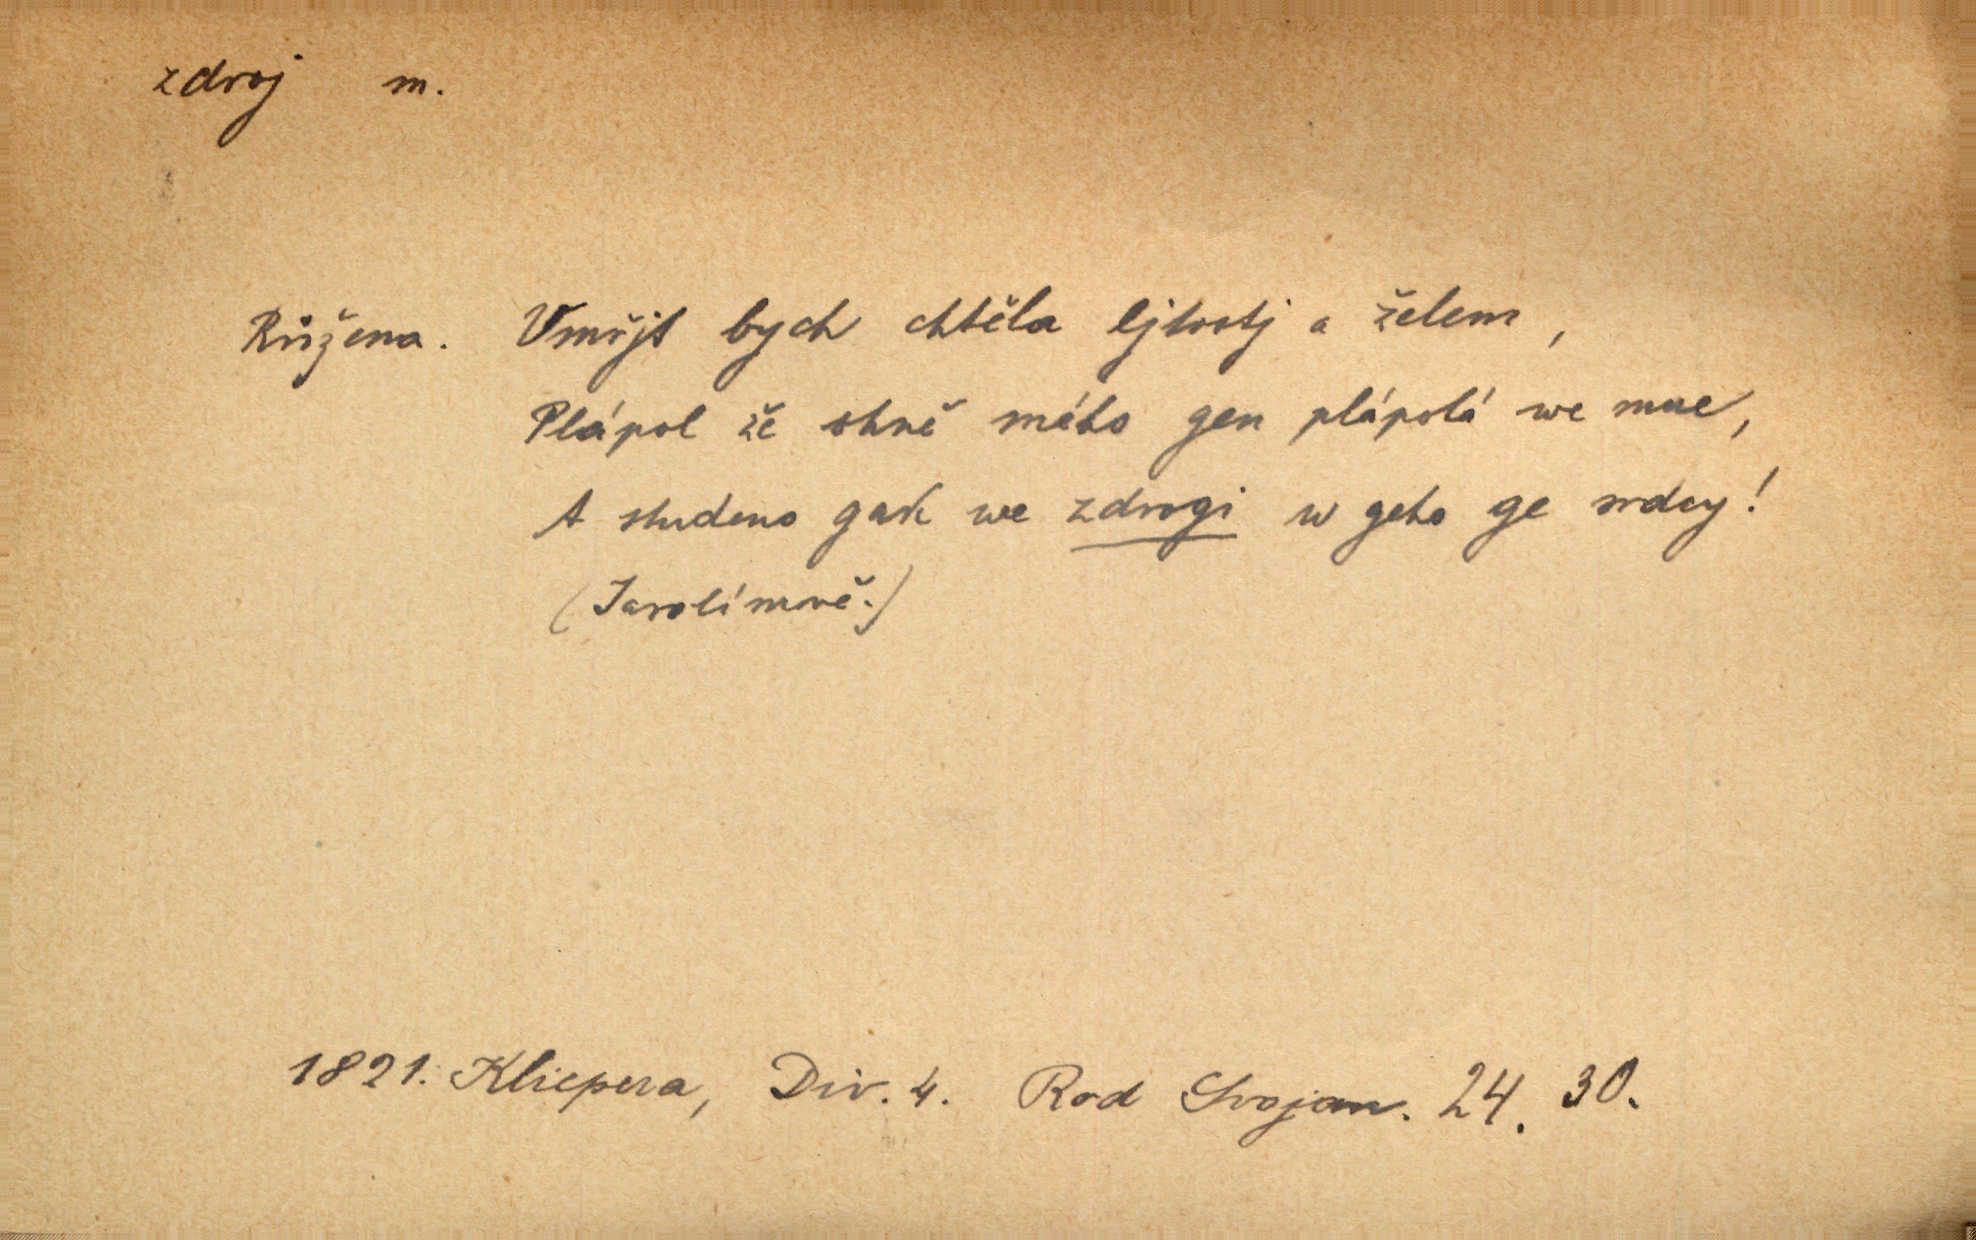 zdroj m.
Růžena. Vmřjt bych chtěla ljtostj a želem,
Plápol že ohně mého gen plápolá we mne,
A studeno gak we zdrogi w geho ge srdcy!
(Jarolímowě.)
1821. Klicpera, Div. 4. Rod Svojan. 24. 30.